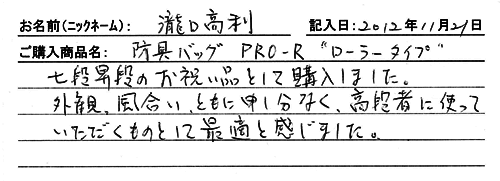 お名前(ニックネーム): 瀧口高利 記入日:2012年11月21日
ご購入商品名: 防具バッグ PRO-R "ローラータイプ"
七段昇段のお祝い品として購入しました。
外観、風合い、ともに申し分なく、高段者に使って
いただくものとして最適と感じました。